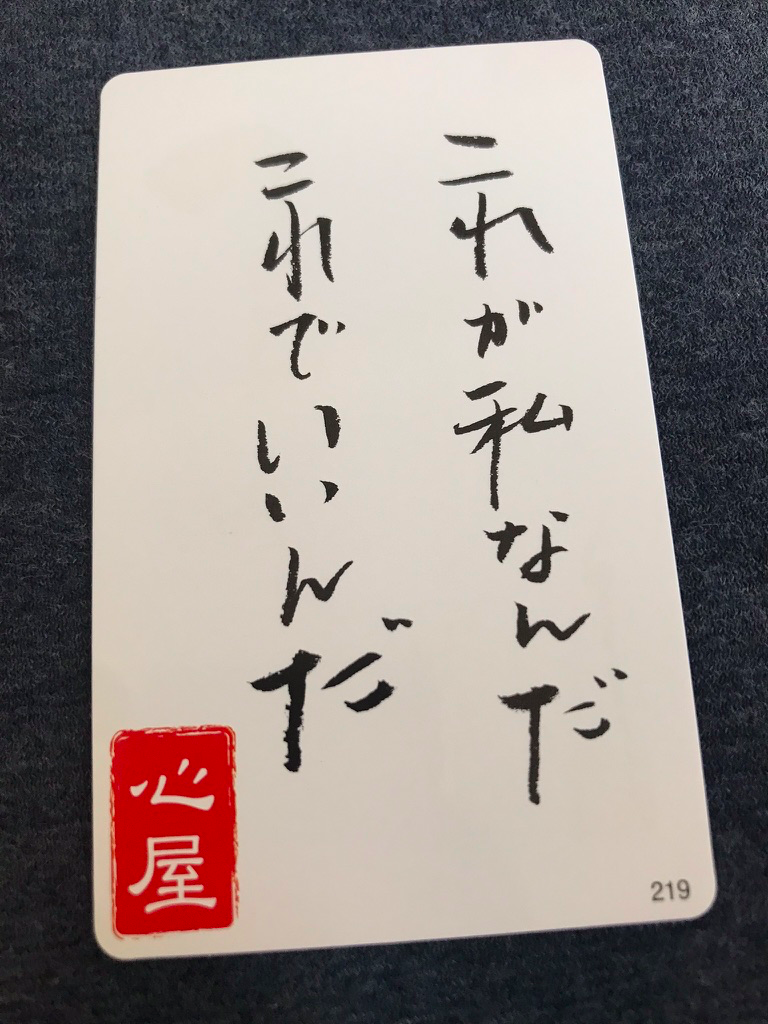 これが私なんだ
これでいいんだ
心屋
219